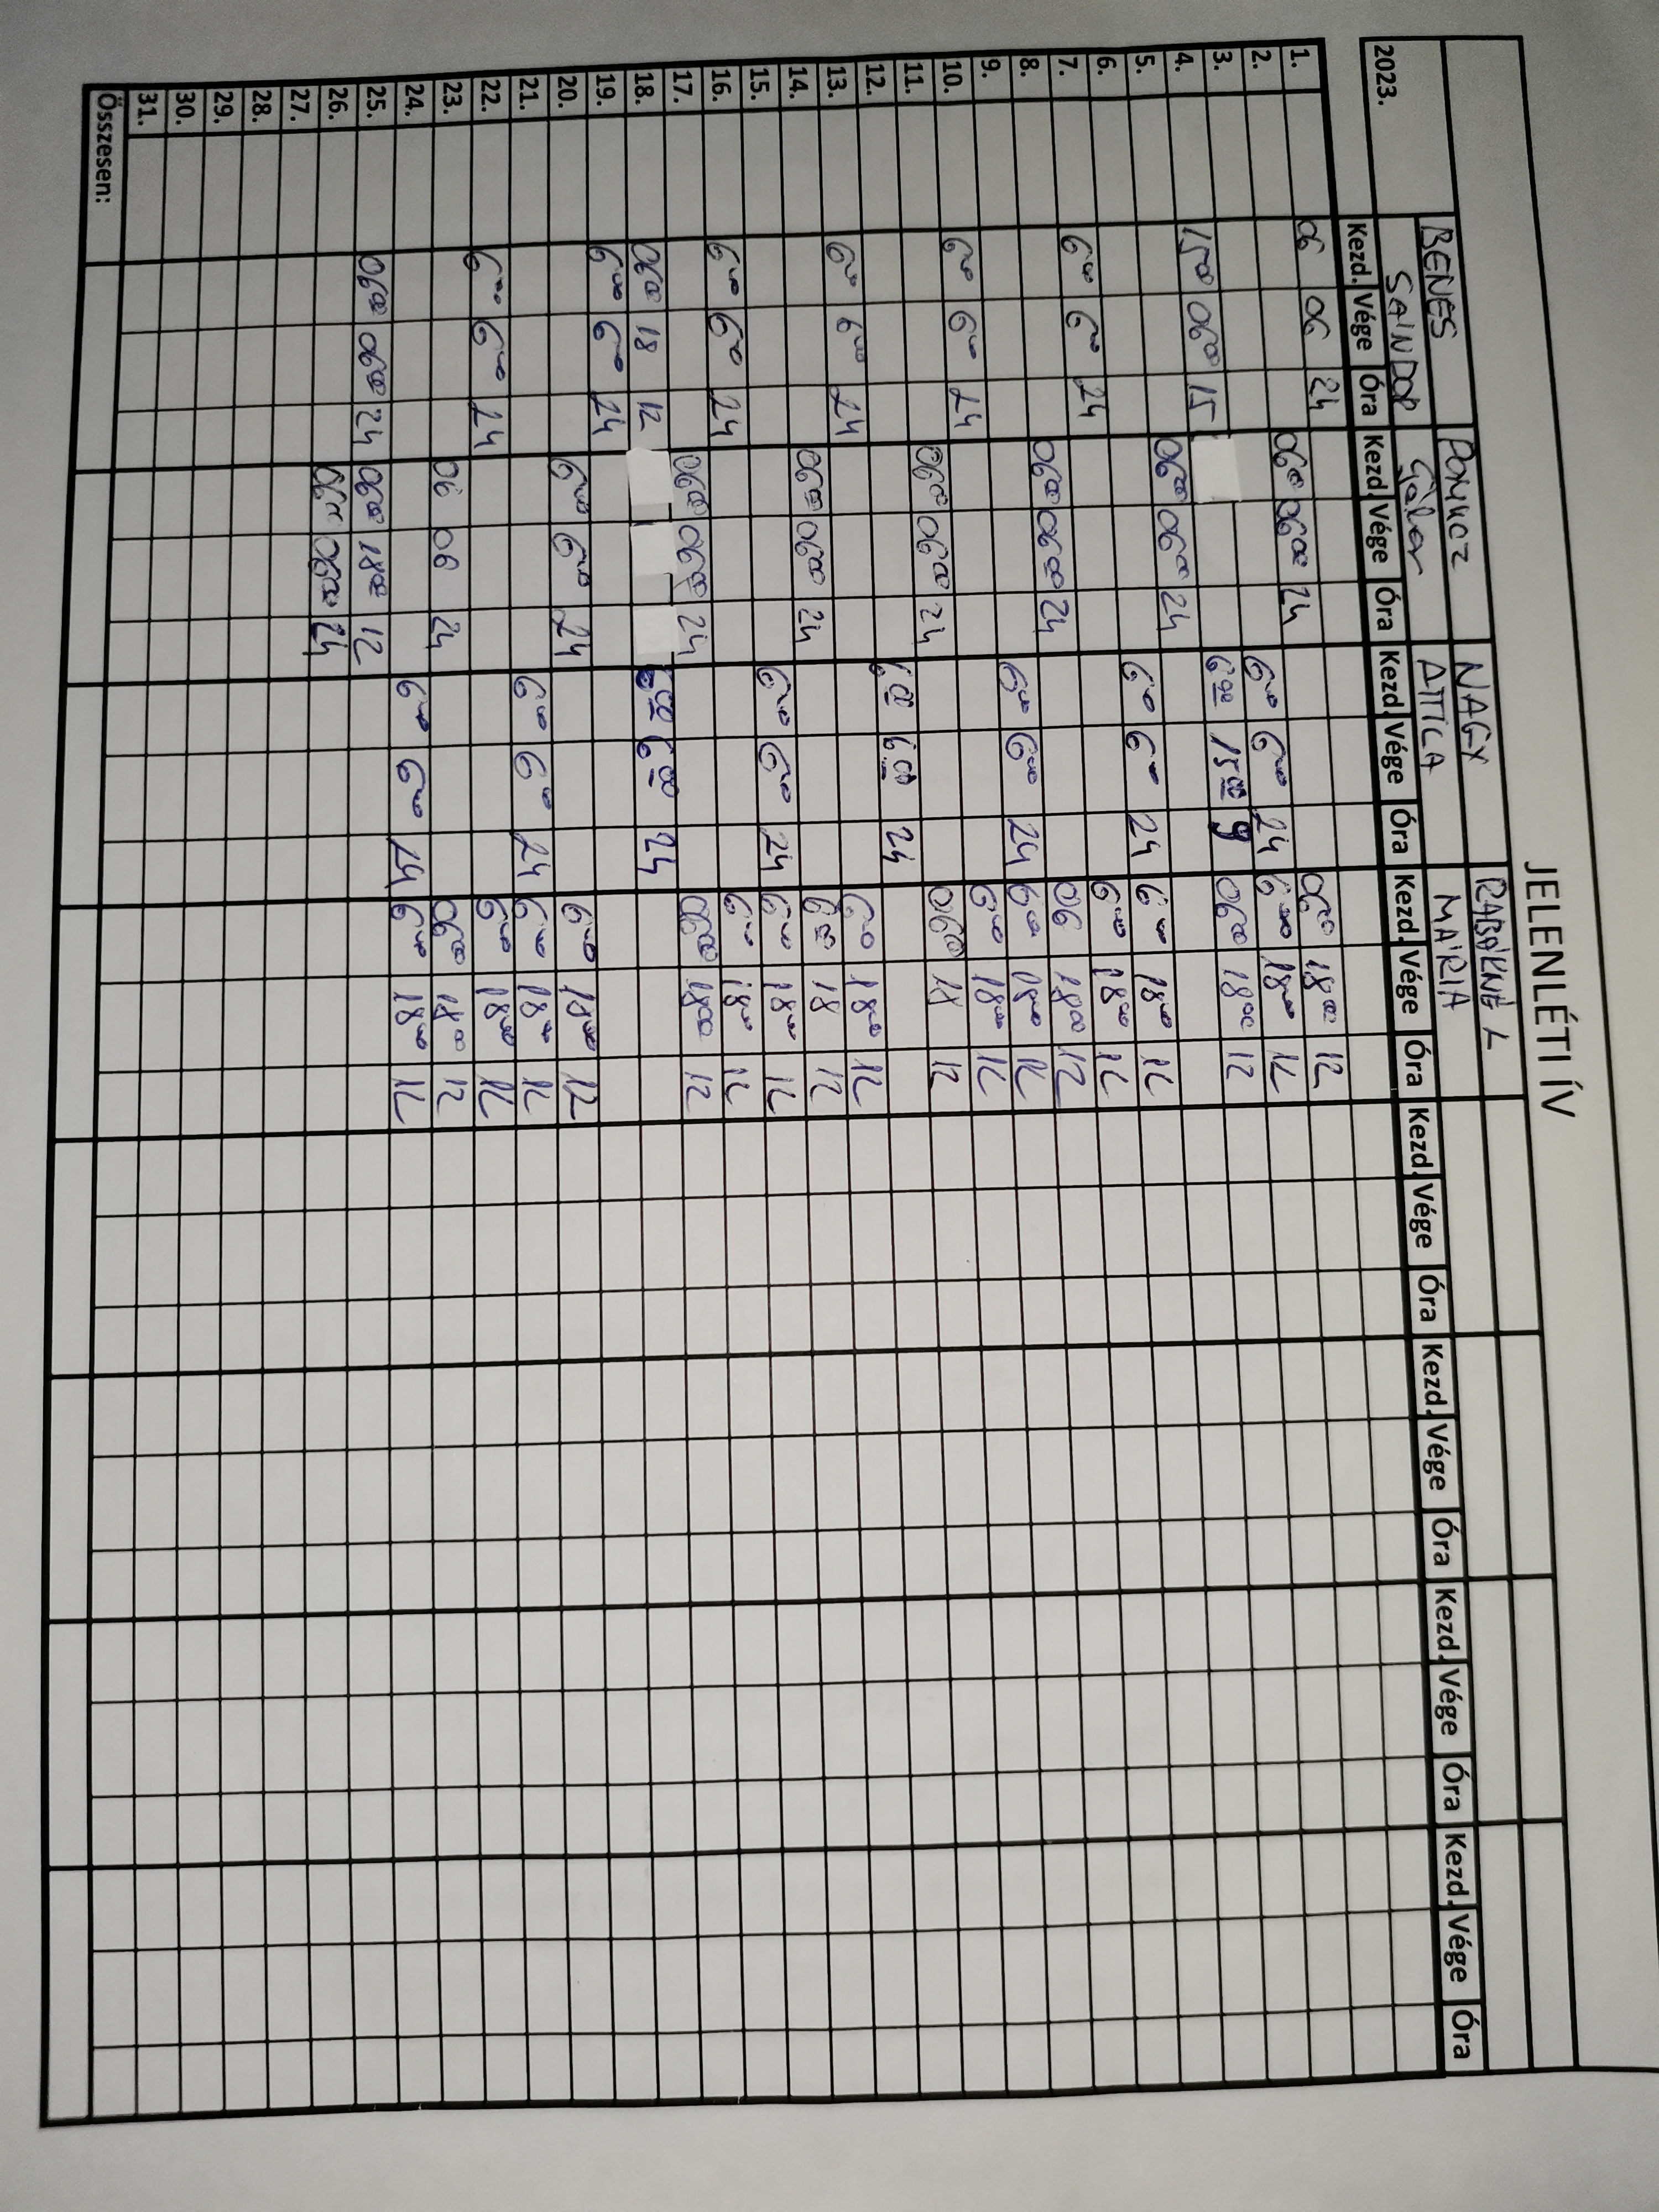 JELENLÉTI ÍV
2023. BENES SÁNDOR Pomucz Gábor NAGY ATTILA RABÁKNÉ L MÁRIA
Kezd. Vége Óra Kezd. Vége Óra Kezd. Vége Óra Kezd. Vége Óra Kezd. Vége Óra Kezd. Vége Óra Kezd. Vége Óra Kezd. Vége Óra
1. 06 06 24
2. 06 00 06 00 24 06 00 18 00 12
3. 6 00 6 00 24 6 00 18 00 12
4. 15 00 06 00 15 6 00 15 00 9 06 00 18 00 12
5. 06 00 06 00 24
6. 6 00 6 00 24 6 00 18 00 12
7. 6 00 6 00 24 6 00 18 00 12
8. 06 00 06 00 24 06 18 00 12
9. 6 00 6 00 24 6 00 18 00 12
10. 6 00 6 00 24 6 00 18 00 12
11. 06 00 06 00 24 06 00 18 12
12. 6 00 6 00 24
13. 6 00 6 00 24 6 00 18 00 12
14. 06 00 06 00 24 6 00 18 12
15. 6 00 6 00 24 6 00 18 00 12
16. 6 00 6 00 24 6 00 18 00 12
17. 06 00 06 00 24 06 00 18 00 12
18. 06 00 18 12 6 00 6 00 24
19. 6 00 6 00 24
20. 6 00 6 00 24 6 00 18 00 12
21. 6 00 6 00 24 6 00 18 00 12
22. 6 00 6 00 24 6 00 18 00 12
23. 06 06 24 06 00 18 00 12
24. 6 00 6 00 24 6 00 18 00 12
25. 06 00 06 00 24 06 00 18 00 12
26. 06 00 06 00 24
27.
28.
29.
30.
31.
Összesen: